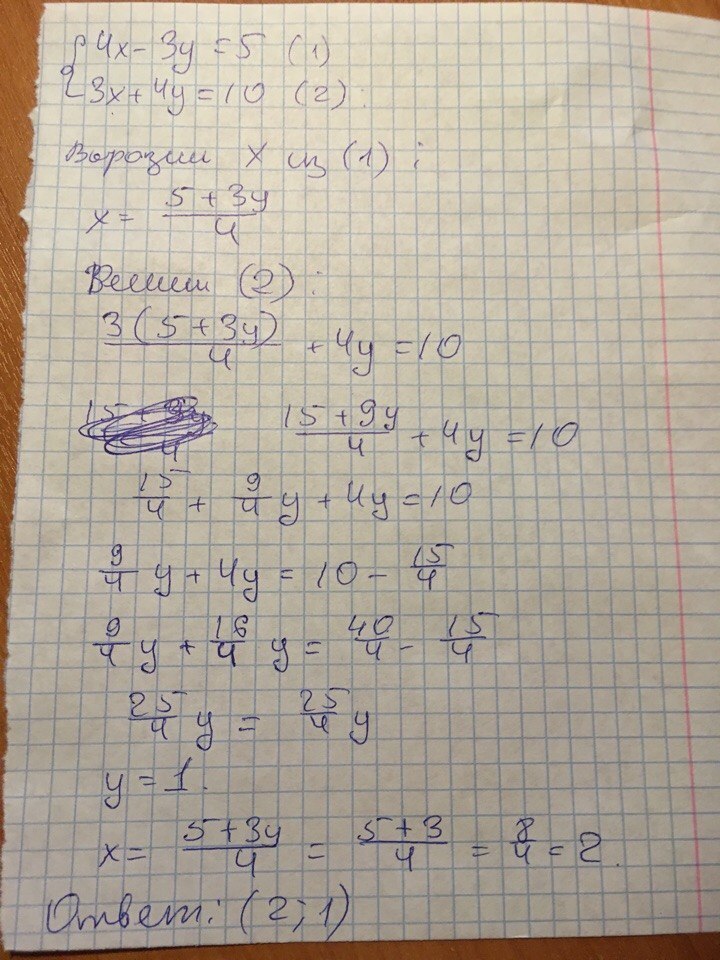 { 4x - 3y = 5 (1)
3x + 4y = 10 (2)
Выразим x из (1):
x = (5 + 3y)/4
Решим (2):
3(5 + 3y)/4 + 4y = 10
(15 + 9y)/4 + 4y = 10
15/4 + 9/4 y + 4y = 10
9/4 y + 4y = 10 - 15/4
9/4 y + 16/4 y = 40/4 - 15/4
25/4 y = 25/4 y
y = 1.
x = (5 + 3y)/4 = (5 + 3)/4 = 8/4 = 2.
Ответ: (2; 1)